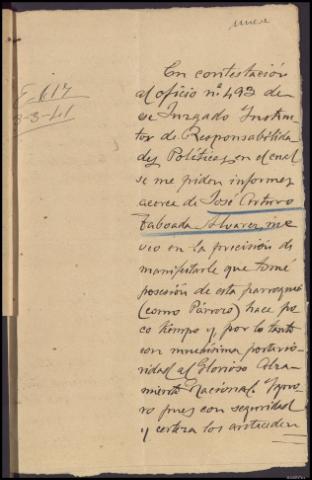 nueve
E. 617
3-3-41
En contestación
al oficio nº 493 de
ese Juzgado Instruc
tor de Responsabilida
des Políticas, en el cual
se me piden informes
acerca de José Arturo
Taboada Alvarez, me
veo en la precisión de
manifestarle que tomé
posesión de esta parroquia
(como Párroco) hace po
co tiempo y, por lo tanto
con muchísima posterio-
ridad al Glorioso Alza-
miento Nacional. Igno-
ro pues con seguridad
y certeza los anteceden